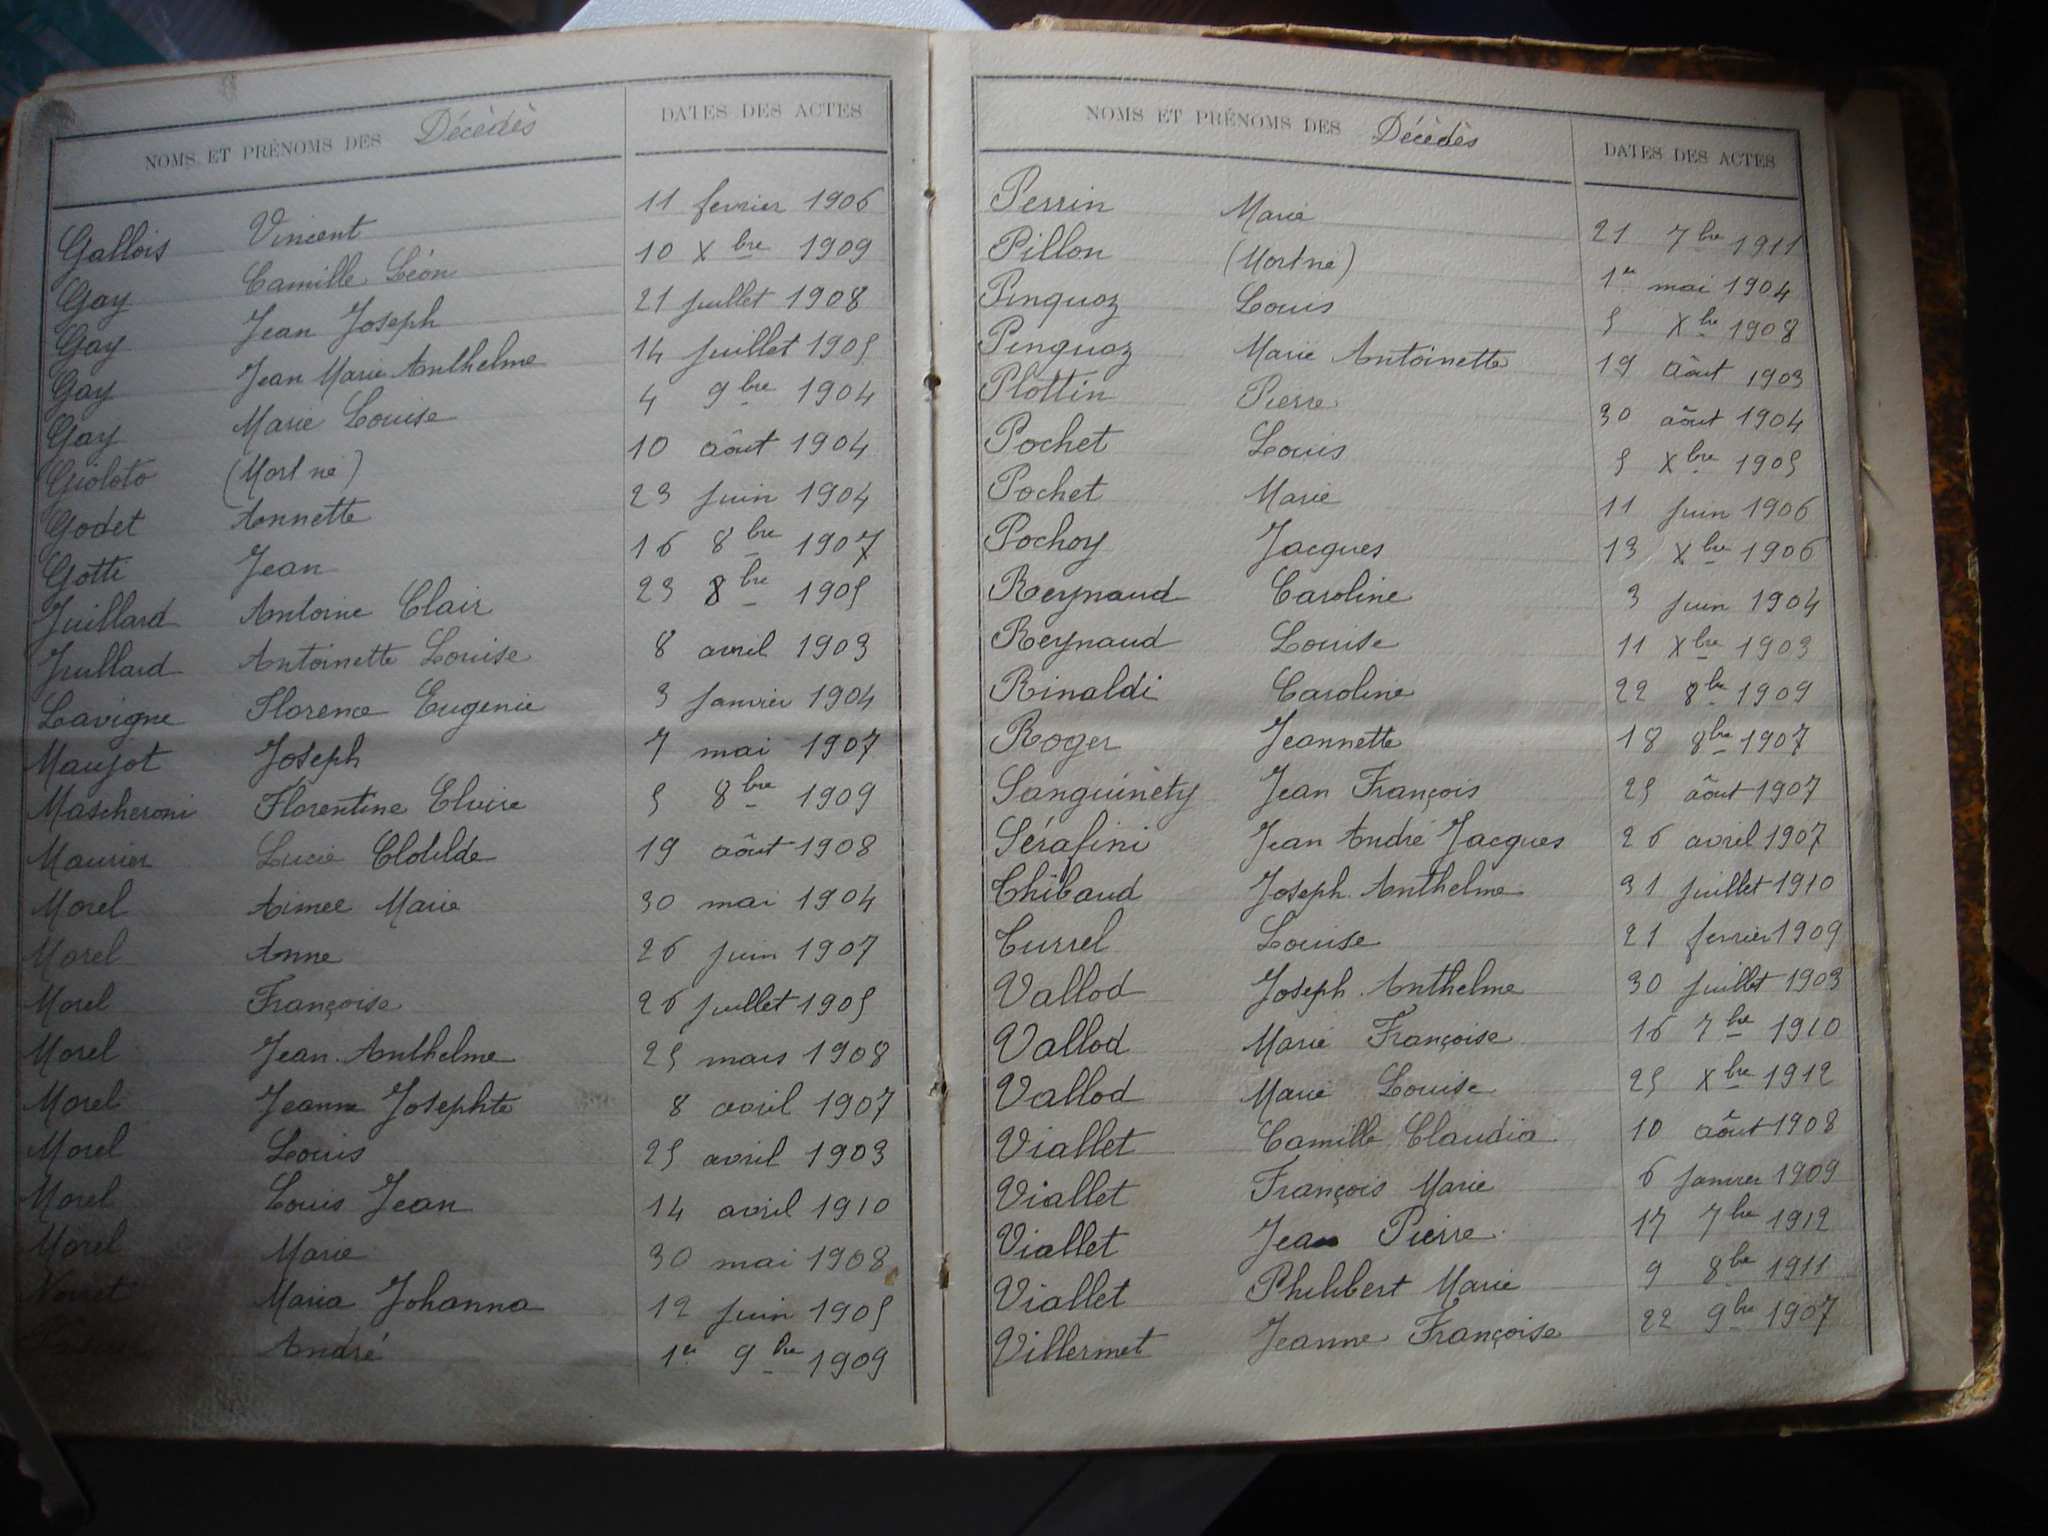 NOMS ET PRÉNOMS DES Décédés DATES DES ACTES
Gallois Vincent 11 fevrier 1906
Gay Camille Léon 10 Xbre 1909
Gay Jean Joseph 21 juillet 1908
Gay Jean Marie Anthelme 14 juillet 1905
Gay Marie Louise 4 9bre 1904
Gioloto (Mort né) 10 aôut 1904
Godet Annette 23 juin 1904
Gotti Jean 16 8bre 1907
Juillard Antoine Clair 23 8bre 1905
Juillard Antoinette Louise 8 avril 1903
Lavigne Florence Eugenie 3 janvier 1904
Maujot Joseph 7 mai 1907
Mascheroni Florentine Elvire 5 8bre 1909
Maurier Lucie Clotilde 19 aôut 1908
Morel Aimee Marie 30 mai 1904
Morel Anne 26 juin 1907
Morel Françoise 26 juillet 1905
Morel Jean Anthelme 25 mars 1908
Morel Jeanne Josephte 8 avril 1907
Morel Louis 25 avril 1903
Morel Louis Jean 14 avril 1910
Morel Marie 30 mai 1908
Noiret Maria Johanna 12 juin 1905
André 1er 9bre 1909
NOMS ET PRÉNOMS DES Décédés DATES DES ACTES
Perrin Marie 21 7bre 1911
Pillon (Mort né) 1er mai 1904
Pinquoz Louis 5 Xbre 1908
Pinquoz Marie Antoinette 19 aôut 1903
Plottin Pierre 30 aôut 1904
Pochet Louis 5 Xbre 1905
Pochet Marie 11 juin 1906
Pochoy Jacques 13 Xbre 1906
Reynaud Caroline 3 juin 1904
Reynaud Louise 11 Xbre 1903
Rinaldi Caroline 22 8bre 1909
Roger Jeannette 18 8bre 1907
Sanguinéty Jean François 25 aôut 1907
Sérafini Jean André Jacques 26 avril 1907
Thibaud Joseph Anthelme 31 juillet 1910
Turrel Louise 21 fevrier 1909
Vallod Joseph Anthelme 30 juillet 1903
Vallod Marie Françoise 16 7bre 1910
Vallod Marie Louise 25 Xbre 1912
Viallet Camille Claudia 10 aôut 1908
Viallet François Marie 6 janvier 1909
Viallet Jean Pierre 17 7bre 1912
Viallet Philibert Marie 9 8bre 1911
Villermet Jeanne Françoise 22 9bre 1907